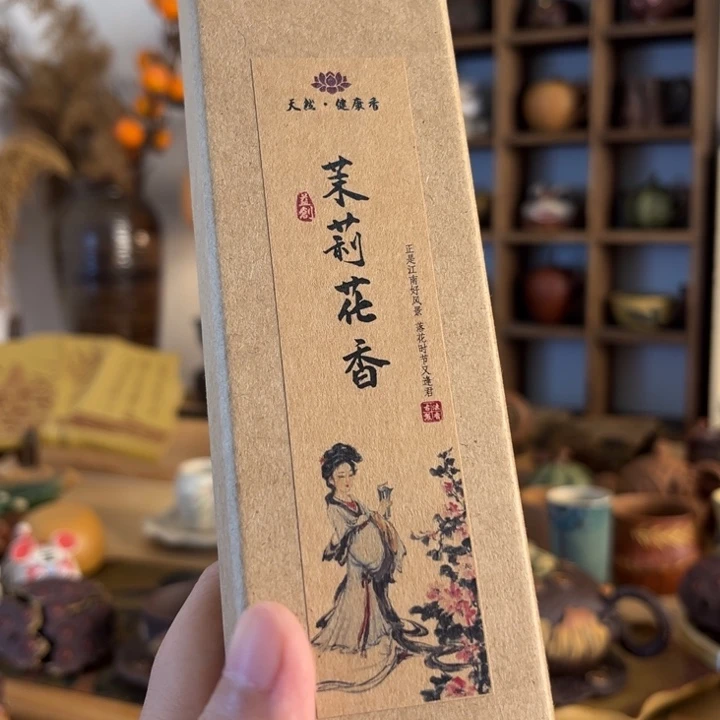 天然·健康香
茉莉花香
正是江南好风景 落花时节又逢君